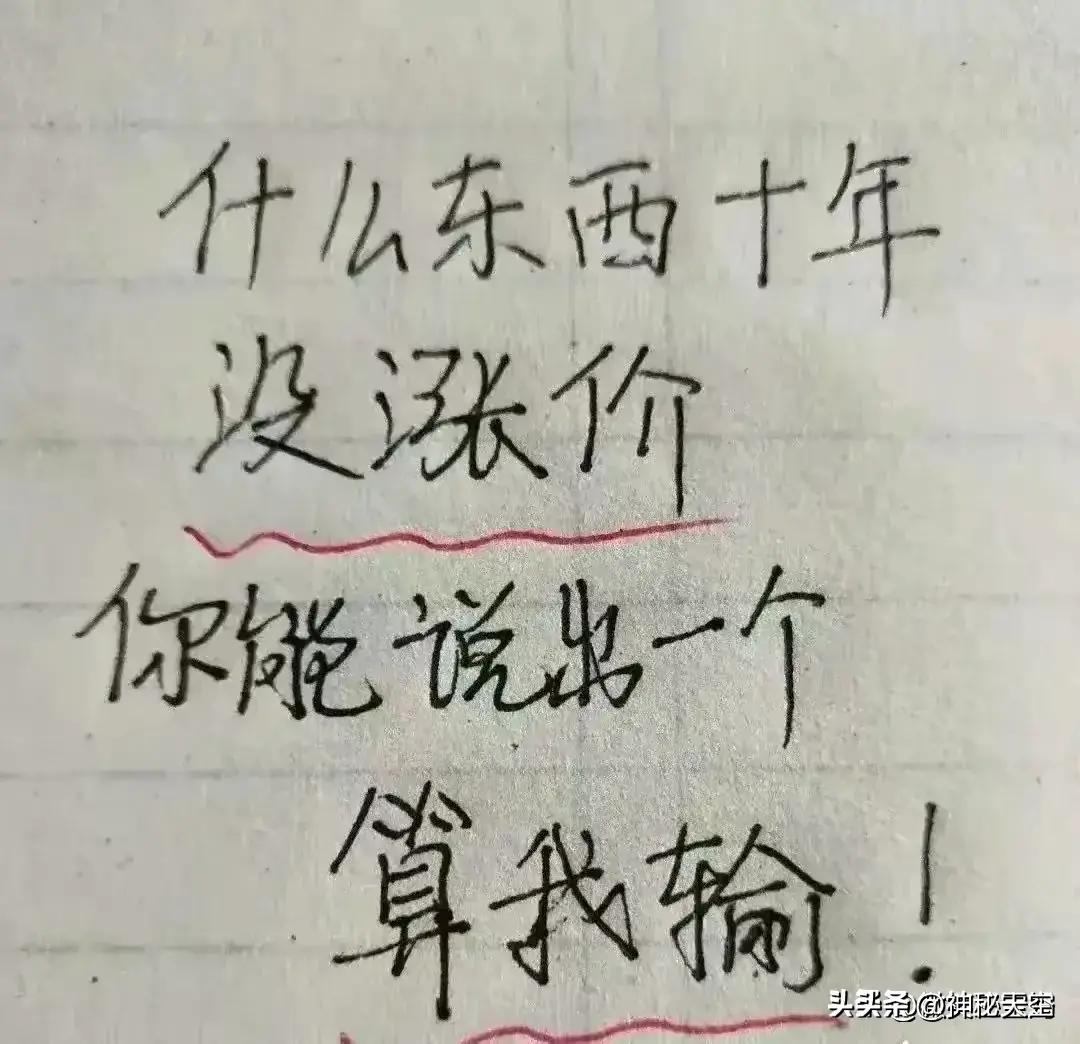 什么东西十年
没涨价
你能说出一个
算我输！
头条 @神秘天空